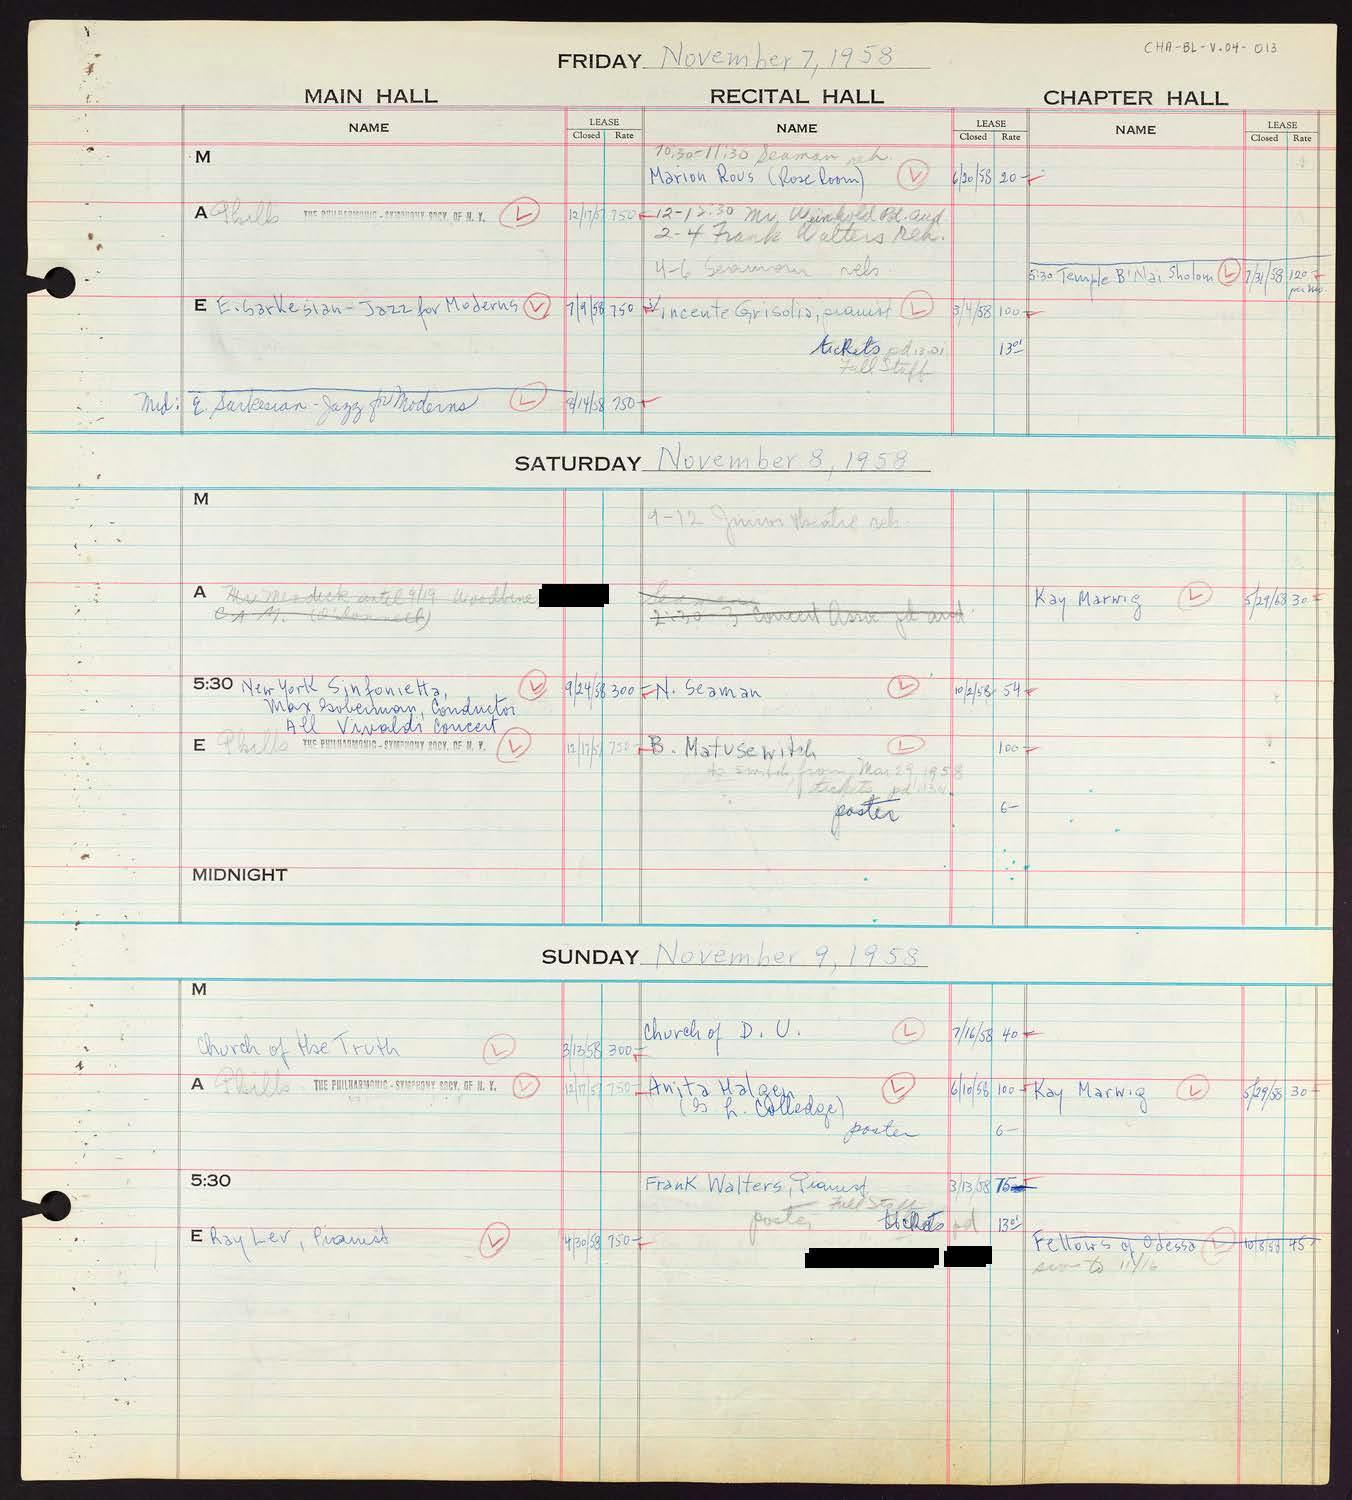 CHA-BL-V.04-013
FRIDAY November 7, 1958
MAIN HALL RECITAL HALL CHAPTER HALL
NAME LEASE Closed Rate NAME LEASE Closed Rate NAME LEASE Closed Rate
M
10:30-11:30 Seaman reh.
Marion Rous (Rose Room) 6/20/58 20-
A Phills THE PHILHARMONIC-SYMPHONY SOCY. OF N. Y. 12/17/57 750
12-1
2-4 Frank Walters Reh.
4-6 reh.
5:30 Temple B'Nai Sholom 7/31/58 120
E E. Sarkesian - Jazz for Moderns 7/9/58 750 Vincente Grisolia, pianist 3/4/58 100-
tickets pd 13.01 13.01
Full Staff
Mid: E. Sarkesian - Jazz for Moderns 8/14/58 750
SATURDAY November 8, 1958
M
9-12 Junior theatre reh.
A until 9/19
Seaman
2:30-3 Concert pd and
Kay Marwig 30-
5:30 New York Sinfonietta, 9/24/58 300 N. Seaman 10/2/58 54
Max Goberman, Conductor
All Vivaldi Concert
E Phills THE PHILHARMONIC-SYMPHONY SOCY. OF N. Y. 12/17/57 750 B. Matusewitch 100-
to switch from Mar 29, 1958
tickets pd
poster 6-
MIDNIGHT
SUNDAY November 9, 1958
M
Church of D. U. 7/16/58 40-
Church of the Truth 3/13/58 300-
A Phills THE PHILHARMONIC-SYMPHONY SOCY. OF N. Y. 12/17/57 750- Anita Halgen 6/10/58 100- Kay Marwig 5/29/58 30-
poster 6-
5:30
Frank Walters, Pianist 3/13/58 75
Full Staff
poster tickets pd 13.01
E Ray Lev, Pianist 4/30/58 750- Fellows of Odessa 10/8/58 45-
to 11/16